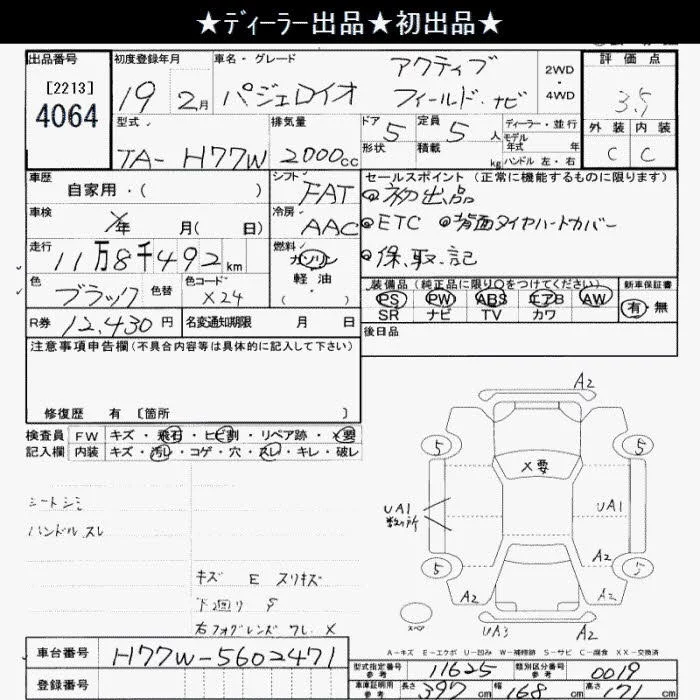 ★ディーラー出品★初出品★
出品番号 初度登録年月 車名・グレード 評価点
[2213]
4064
19 2月 パジェロイオ アクティブ 2WD
フィールド・ナビ 4WD
3.5
型式 排気量 ドア 5 定員 5人 ディーラー・並行 外装 内装
TA-H77W 2000cc 形状 積載 kg モデル年式 年式 ハンドル 左・右 C C
車歴 シフト FAT セールスポイント(正常に機能するものに限ります)
自家用・( ) ◎初出品
車検 年 月( 日) 冷房 AAC ◎ETC ◎背面タイヤハードカバー
走行 11万8千492km 燃料 ガソリン ◎保.取.記
軽油
( ・ )
色 ブラック 色替 色コード X24 装備品(純正品に限り○をつけてください) 新車保証書
PS PW ABS エアB AW 有・無
SR ナビ TV カワ
R券 12,430円 名変通知期限 月 日 後日品
注意事項申告欄(不具合内容等は具体的に記入して下さい)
修復歴 有 [箇所 ]
検査員 FW キズ・飛石・ヒビ割・リペア跡・X要
記入欄 内装 キズ・汚レ・コゲ・穴・スレ・キレ・破レ
シートシミ
ハンドルスレ
キズ E スリキズ
下回り S
右フォグレンズワレ.X
A2
5 5
X要
UA1 UA1
数ヶ所
A2
5 5
A2 A2
スペア UA3 A2
A-キズ E-エクボ U-凹み W-補修跡 S-サビ C-腐食 XX-交換済
車台番号 H77W-5602471
型式指定番号 参考 11625 類別区分番号 参考 0019
登録番号 車庫証明用 参考 長さ 397cm 幅 168cm 高さ 171cm